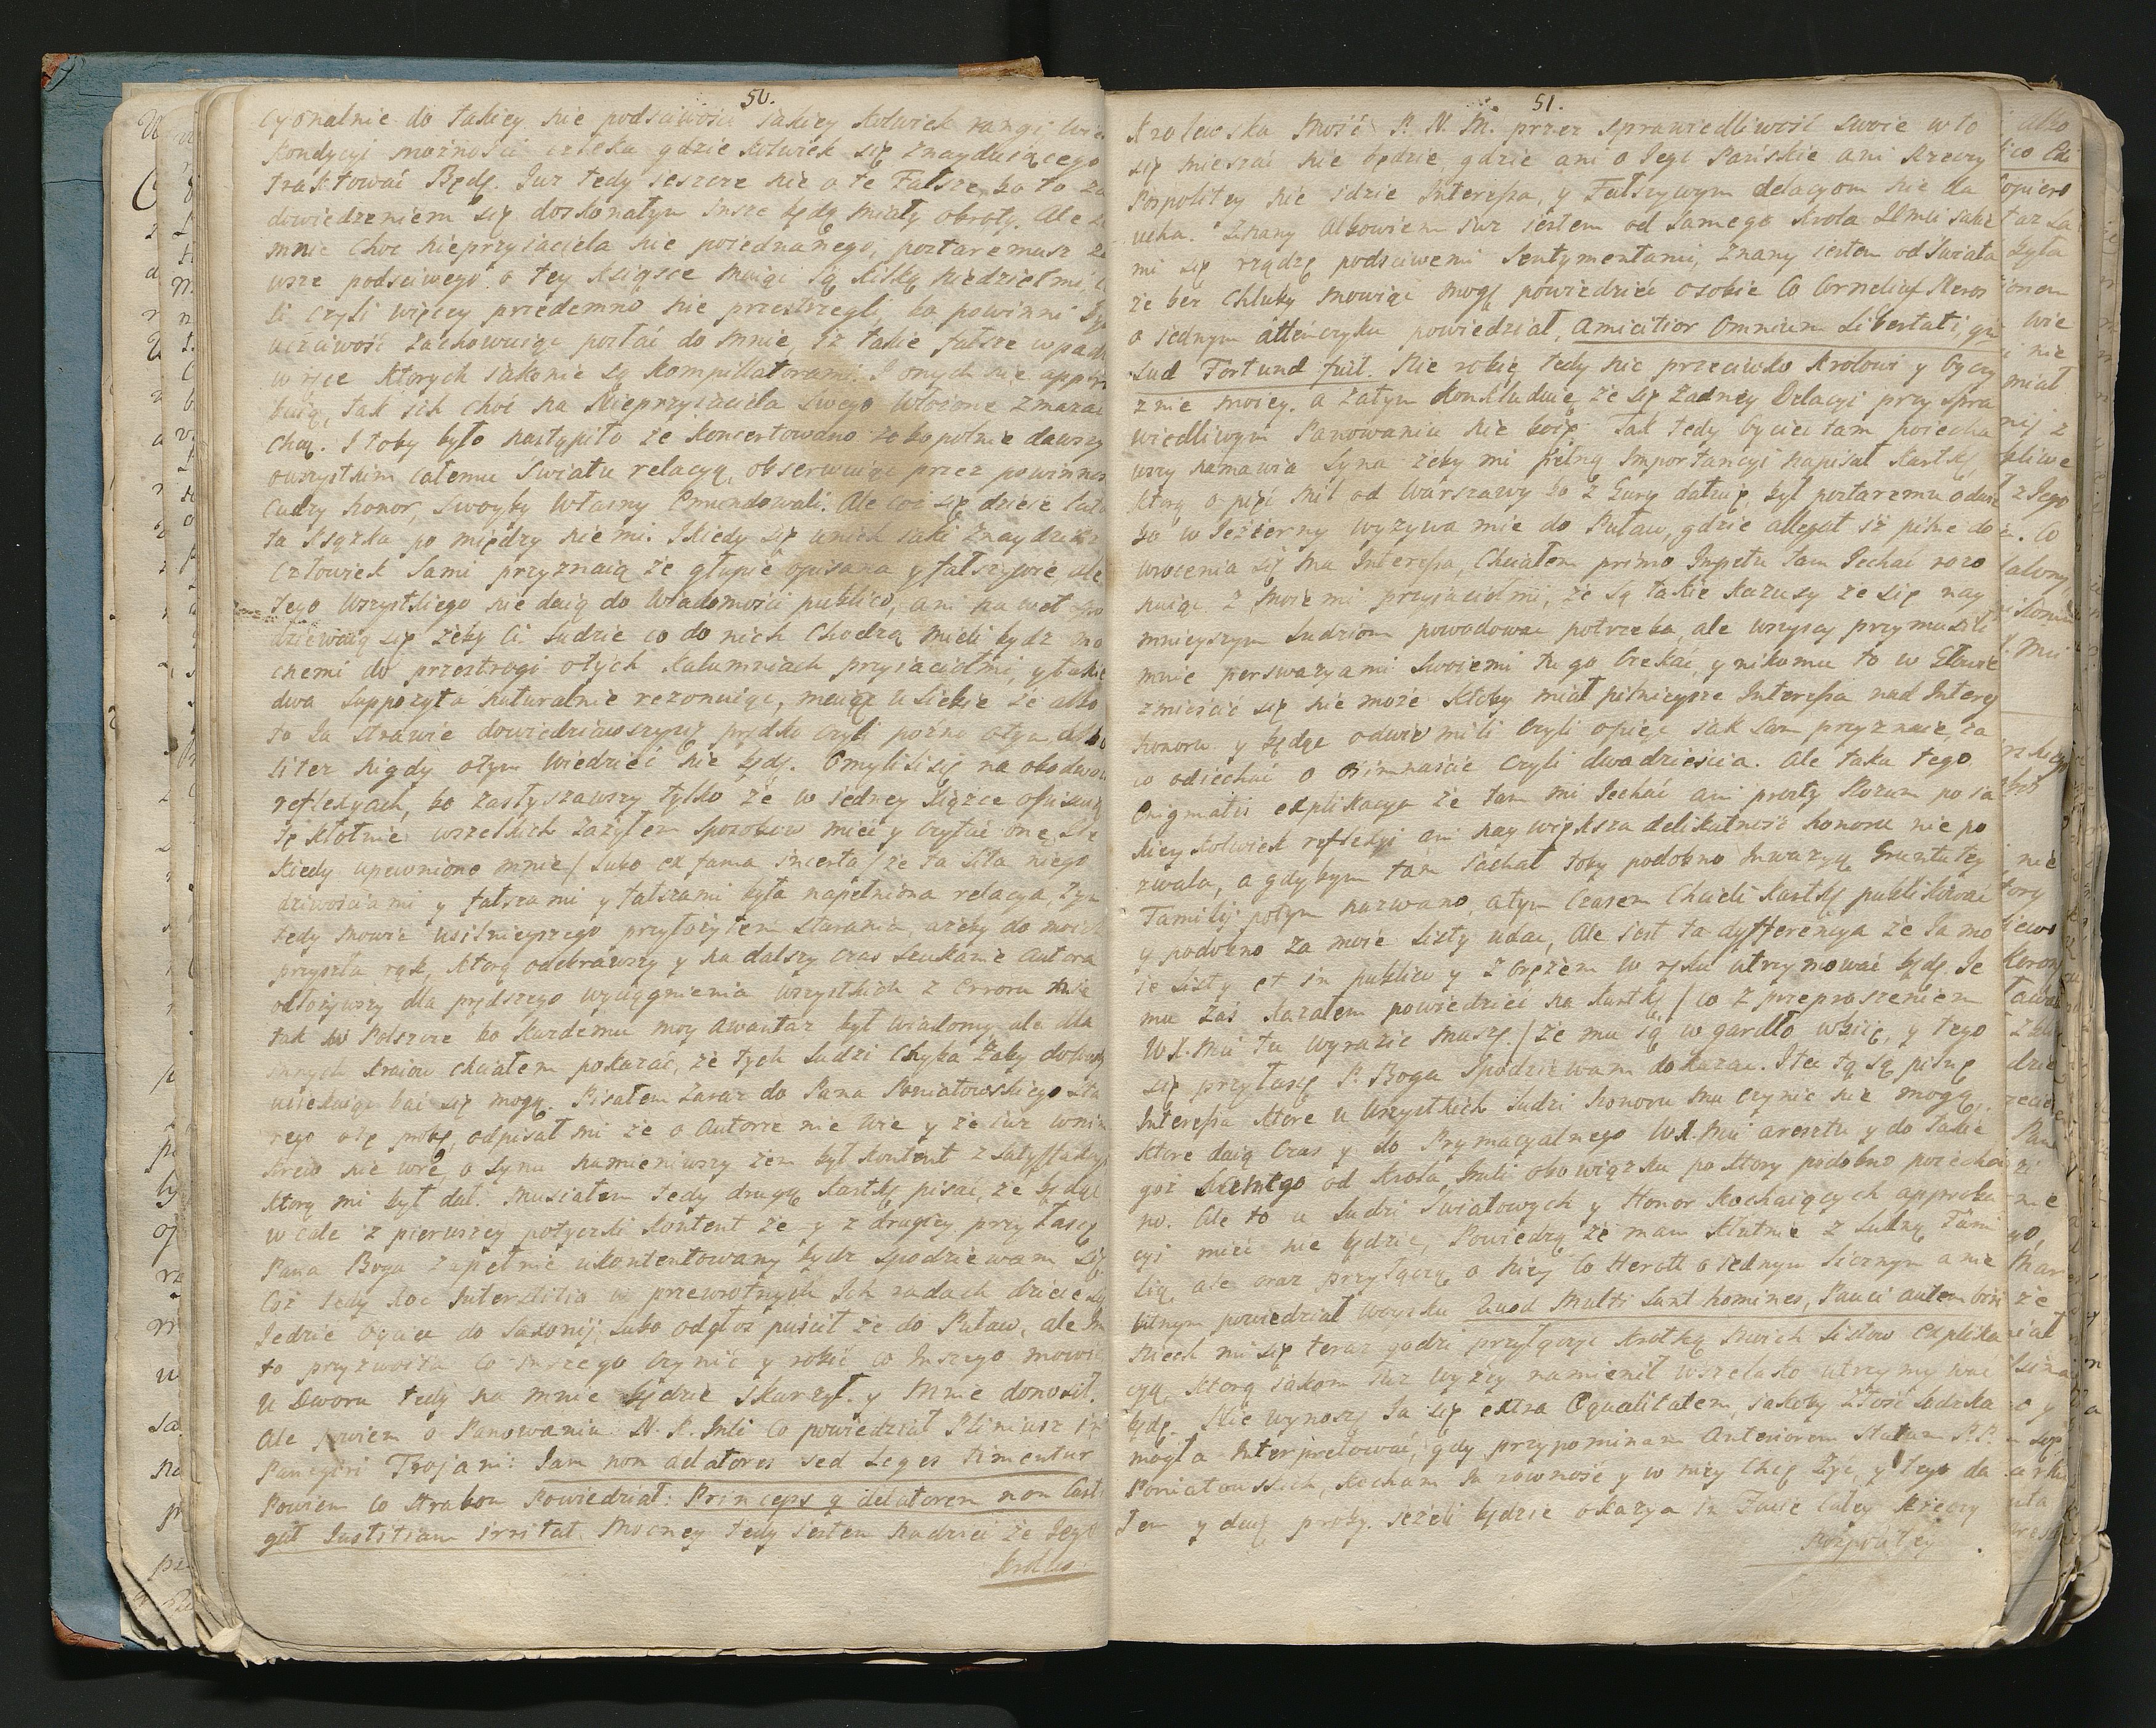 50.
cyonalnie do takiey nie podsciwości iakiey kolwiek rangi
kondycyi możności czleka gdzie kolwiek się znayduiącego
traktować Będę. Juz tedy ieszcze nie o te Fałsze, bo to za
dowiedzeniem się doskonałym insze będą miały obroty. Ale że
mnie choc nieprzyiaciela nie poiednanego, poztaremusz za
wsze podsciwego o tey książce maiąc ią kilką niedzielmi,
li czyli więcey przedemno nie przestrzegli, bo powinni by
uczciwość zachowuiąc posłać do mnie, iz takie fałsze wpadły
w ręce ktorych iakonie są kompillatorami. I onych nie appro
buią, tak ich choć na Nieprzyiaciela swego włożone zmazać
chcą. I toby było nastąpiło że koncertowano zobopolnie dawszy
owszystkim całemu Swiatu relacyą, obserwuiąc przez powinność
cudzy honor, swoyby własny Emendowali. Ale coż się dzieie lata
ta Książka po między niemi. I kiedy się u nich iaki znaydzie
człowiek sami przyznaią że głupie opisana y fałszywie, ale
tego wszystkiego nie daią do wiadomości publico, ani nawet spo
dziewaią się zeby ci ludzie co do nich chodzą mieli bydz mo
chemi do przestrogi otych kalumniach przyiaciołmi, y takie
dwa suppozyta naturalnie rezonuiąc, maiąc u siebie że albo
to Ja strawie dowiedziawszysię prędko czyli pożno otym, albo
liter nigdy otym wiedzieć nie będę. Omylilisię na obodwoch
reflexyach, bo zasłyszawszy tylko że w iedney książce opisuią
tę kłotnie wszelkich zażyłem sposobow mieć y czytać onę, Ale
kiedy upewniono mnie / lubo ex fama incerta / że ta siła niego
dziwościami y fałszami y fałszami była napełniona relacya, tym
tedy mowie usilnieyszego przyłożyłem starania, ażeby do moich
przyszła rąk, ktorą odebrawszy y na dalszy czas szukanie autora
odłożywszy dla prędszego wyciągnienia wszystkich z erroru nie
tak w Polszcze bo kazdemu moy awantaz był wiadomy, ale dla
innych kraiow chciałem pokazać, że tych ludzi chyba żaby
uciekaiąc bać się mogą. Pisałem zaraz do Pana Poniatowskiego sta
rego o tę probę, odpisał mi że o autorze nie wie y że iuz w nim
krew nie wre, o synu namieniwszy żem był kontent z satysfakcyi
ktorą mi był dał. Musiałem tedy drugą kartkę pisać, że będąc
w cale z pierwszey potyczki kontent że y z drugiey przy łasce
Pana Boga zupełnie ukontentowany bydz spodziewam się
Coż tedy hoc Interstitio w przewrotnych Ich radach dzieie się
Jedzie Ociec do Saxonij. Lubo odgłos puścił że do Puław, ale Im
to przyzwoita co inszego czynić y robić co Inszego mowić
U Dworu tedy na mnie będzie skarżył y mnie donosił.
Ale powiem o Panowaniu N. K. Jmci co powiedział Pliniusz in
Panegiri Trajani: Iam non delatores sed leges timentur
Powiem co Strabon powiedział: Princeps q delatorem non casti
gat Iustitiam irritat. Mocney tedy iestem nadziei że Jego
Krolew:
51.
Krolewska Mość P. N. M. przez sprawiedliwość swoie w to
się mieszać nie będzie, gdzie ani o Jego Pańskie ani Rzeczy
Pospolitey nie idzie Interessa, y Fałszywym delacyom nie da
ucha. Znany Albowiem iuz iestem od samego Krola JEmci iakie
mi się rządzę podsciwemi Sentymentami, znany iestem od świata
że bez chluby mowiąc mogę powiedzieć o sobie co Cornelius Neros
o iednym atteńczyku powiedział, Amicitior Omnium Libertati, qu
sud Fortund fuit. Nie robię tedy nic przeciwko Krolowi y oyczy
znie moiey. a zatym konkluduię że się żadney Delacyi przy spra
wiedliwym Panowaniu nie boię. Tak tedy Oyciec tam poiecha
wszy namawia Syna żeby mi pilną Importancyi napisał kartkę,
ktorą o pięć mil od Warszawy bo z Gury datuię, był poztaremu
bo w Jeżierny wyzywa mie do Puław, gdzie allegat iż pilne do
wrocenia się ma Interessa, Chciałem primo Impetu tam Jechać rozo
nuiąc z moiemi przyiaciołmi, że są takie kazusy że się nay
mnieyszym ludziom powodować potrzeba, ale wszyscy przymusili
mnie perswazyami swoiemi tu go czekać, y nikomu to w Głowie
zmieścić się nie może ktoby miał pilnieysze Interessa nad Interes
honoru y będąc odwie mili czyli opięć iak sam przyznaie, za
co odiechać o osimnaście czyli dwadzieścia. Ale taka tego
Enigmatis explikacya że tam mi Jechać ani prosty Rozum po ia
kiey kolwiek reflexyi ani naywiększa delikatność honoru nie po
zwala, a gdybym tam iachał toby podobno Inwazyą Gruntu tey
Familij potym nazwano, atym czasem chcieli kartkę publikować
y podobno za moie listy udać, Ale iest ta dyfferencya że Ja mo
ie listy et in publico y z orężem w ręku utrzymować będę. Je
mu zaś kazałem powiedzieć na kartkę / co z przeproszeniem
WX. Mci tu wyrazic muszę / że mu ią w gardło wbiię, y tego
się przy łasce P. Boga spodziewam dokazać. I te tą są pilne
Interessa ktore u wszystkich ludzi honoru mu czynic nie mogą,
ktore daią czas y do Prymacyalnego WX. Mci aresztu y do takie
goż od Krola Jmci obowiązku po ktory podobno poiecha
no. Ale to u ludzi Swiatowych y Honor kochaiących approba
cyi mieć nie będzie, Powiedzą że mam kłutnie z ludną Fami
lią, ale oraz przyłączą o niey co Herott o iednym licznym a nie
bitnym powiedział Woysku Quod Multi sunt homines, Pauci autem viri
Niech mi się teraz godzi przyłączyć krotką moich listow explika
cyą, ktorą iakom iuz wyżey namienił wszelako utrzymywać
będę. Nie wynoszę Ja się extra Equalitatem, iakoby złość ludzka
mogła Interpretować, gdy przypominam Anteriorem Statum P.P.
Poniatowskich, kocham Ja rowność y w niey chcę żyć, y tego da
łem y daię proby. Jeżeli będzie okazya in Facie całey Rzeczy
Pospolitey